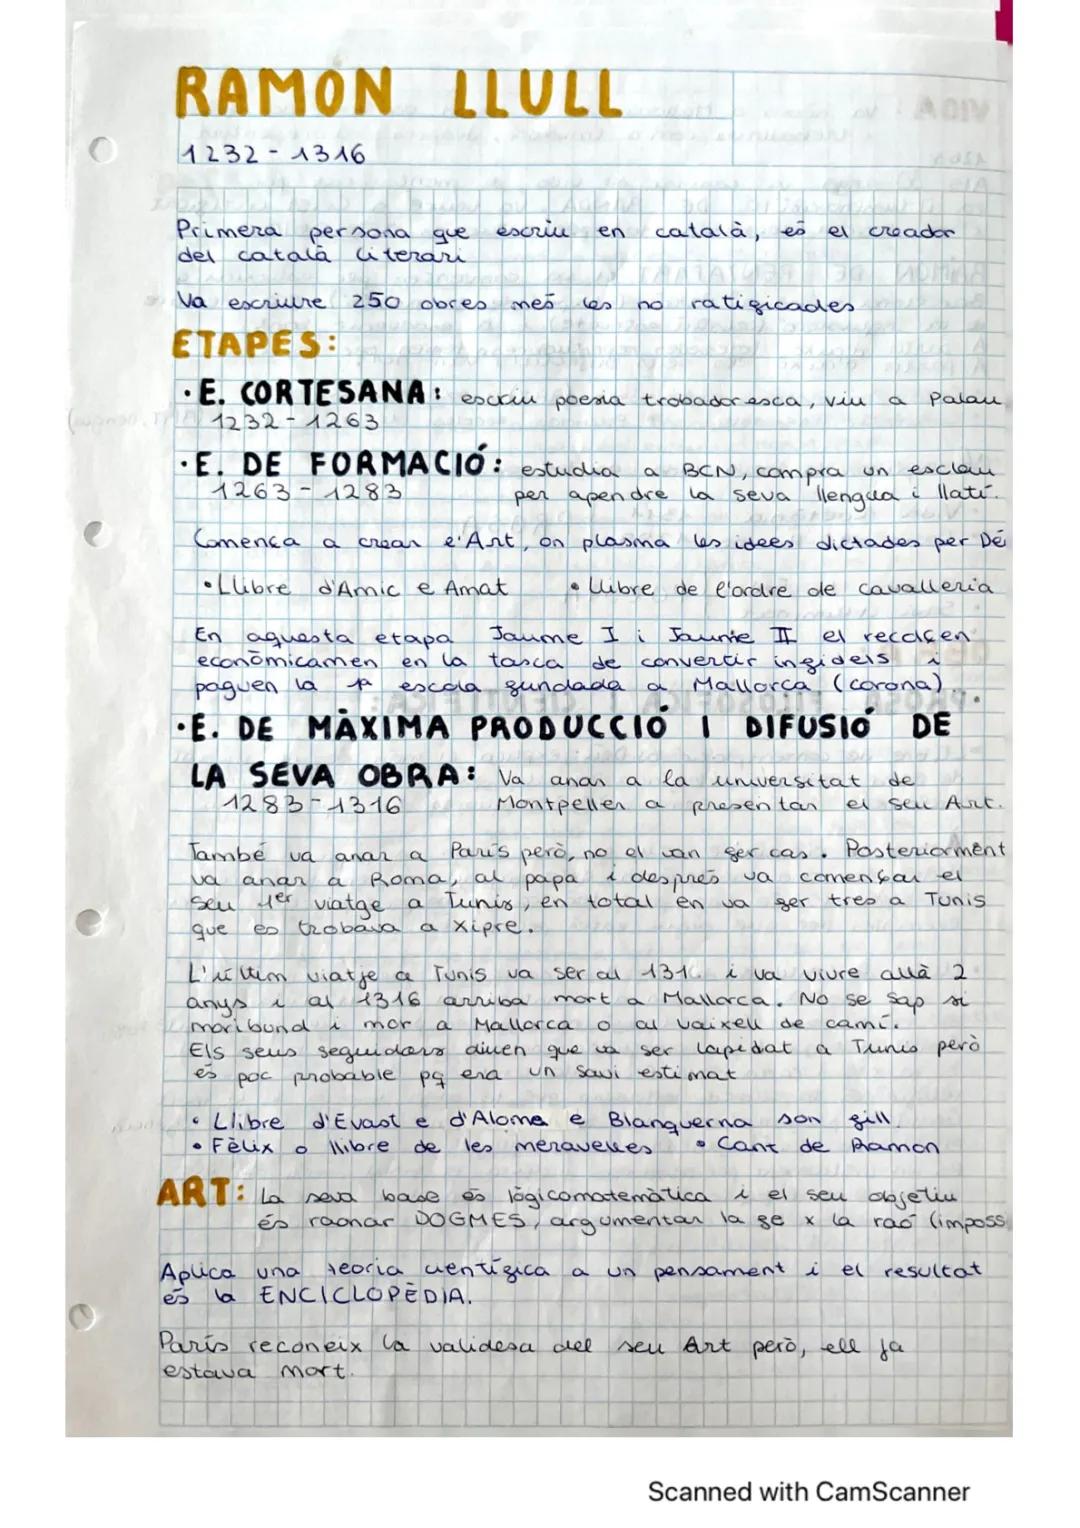 RAMON LLULL
1232 - 1316
Primera persona que escriu en català, és el creador
del català literari
Va escriure 250 obres més les no ratificades
ETAPES:
· E. CORTESANA: escriu poesia trobadoresca, viu a Palau
1232 - 1263
· E. DE FORMACIÓ: estudia a BCN, compra un esclau
1263 - 1283 per apendre la seva llengua i llatí.
Comença a crear l'Art, on plasma les idees dictades per Dé
• Llibre d'Amic e Amat • Llibre de l'ordre de cavalleria
En aquesta etapa Jaume I i Jaume II el recolçen
económicamen en la tasca de convertir infidels i
paguen la 1ª escola fundada a Mallorca (corona)
· E. DE MÀXIMA PRODUCCIÓ I DIFUSIÓ DE
LA SEVA OBRA: Va anar a la universitat de
1283-1316 Montpeller a presentar el seu Art.
També va anar a París però, no el van fer cas. Posteriorment
va anar a Roma, al papa i després va començar el
seu 1er viatge a Tunis, en total en va fer tres a Tunis
que es trobava a Xipre.
L'últim viatje a Tunis va ser al 131 i va viure allà 2
anys i al 1316 arriba mort a Mallorca. No se sap si
moribund i mor a Mallorca o al vaixell de camí.
Els seus seguidors diuen que va ser lapidat a Tunis però
és poc probable pq era un savi estimat
• Llibre d'Evast e d'Aloma e Blanquerna son fill
• Fèlix o llibre de les meravelles • Cant de Ramon
ART: La seva base és lògicomatemàtica i el seu objetiu
és raonar DOGMES, argumentar la fe x la raó (imposs
Aplica una teoria científica a un pensament i el resultat
és la ENCICLOPÈDIA.
París reconeix la validesa del seu Art però, ell ja
estava mort.
Scanned with CamScanner